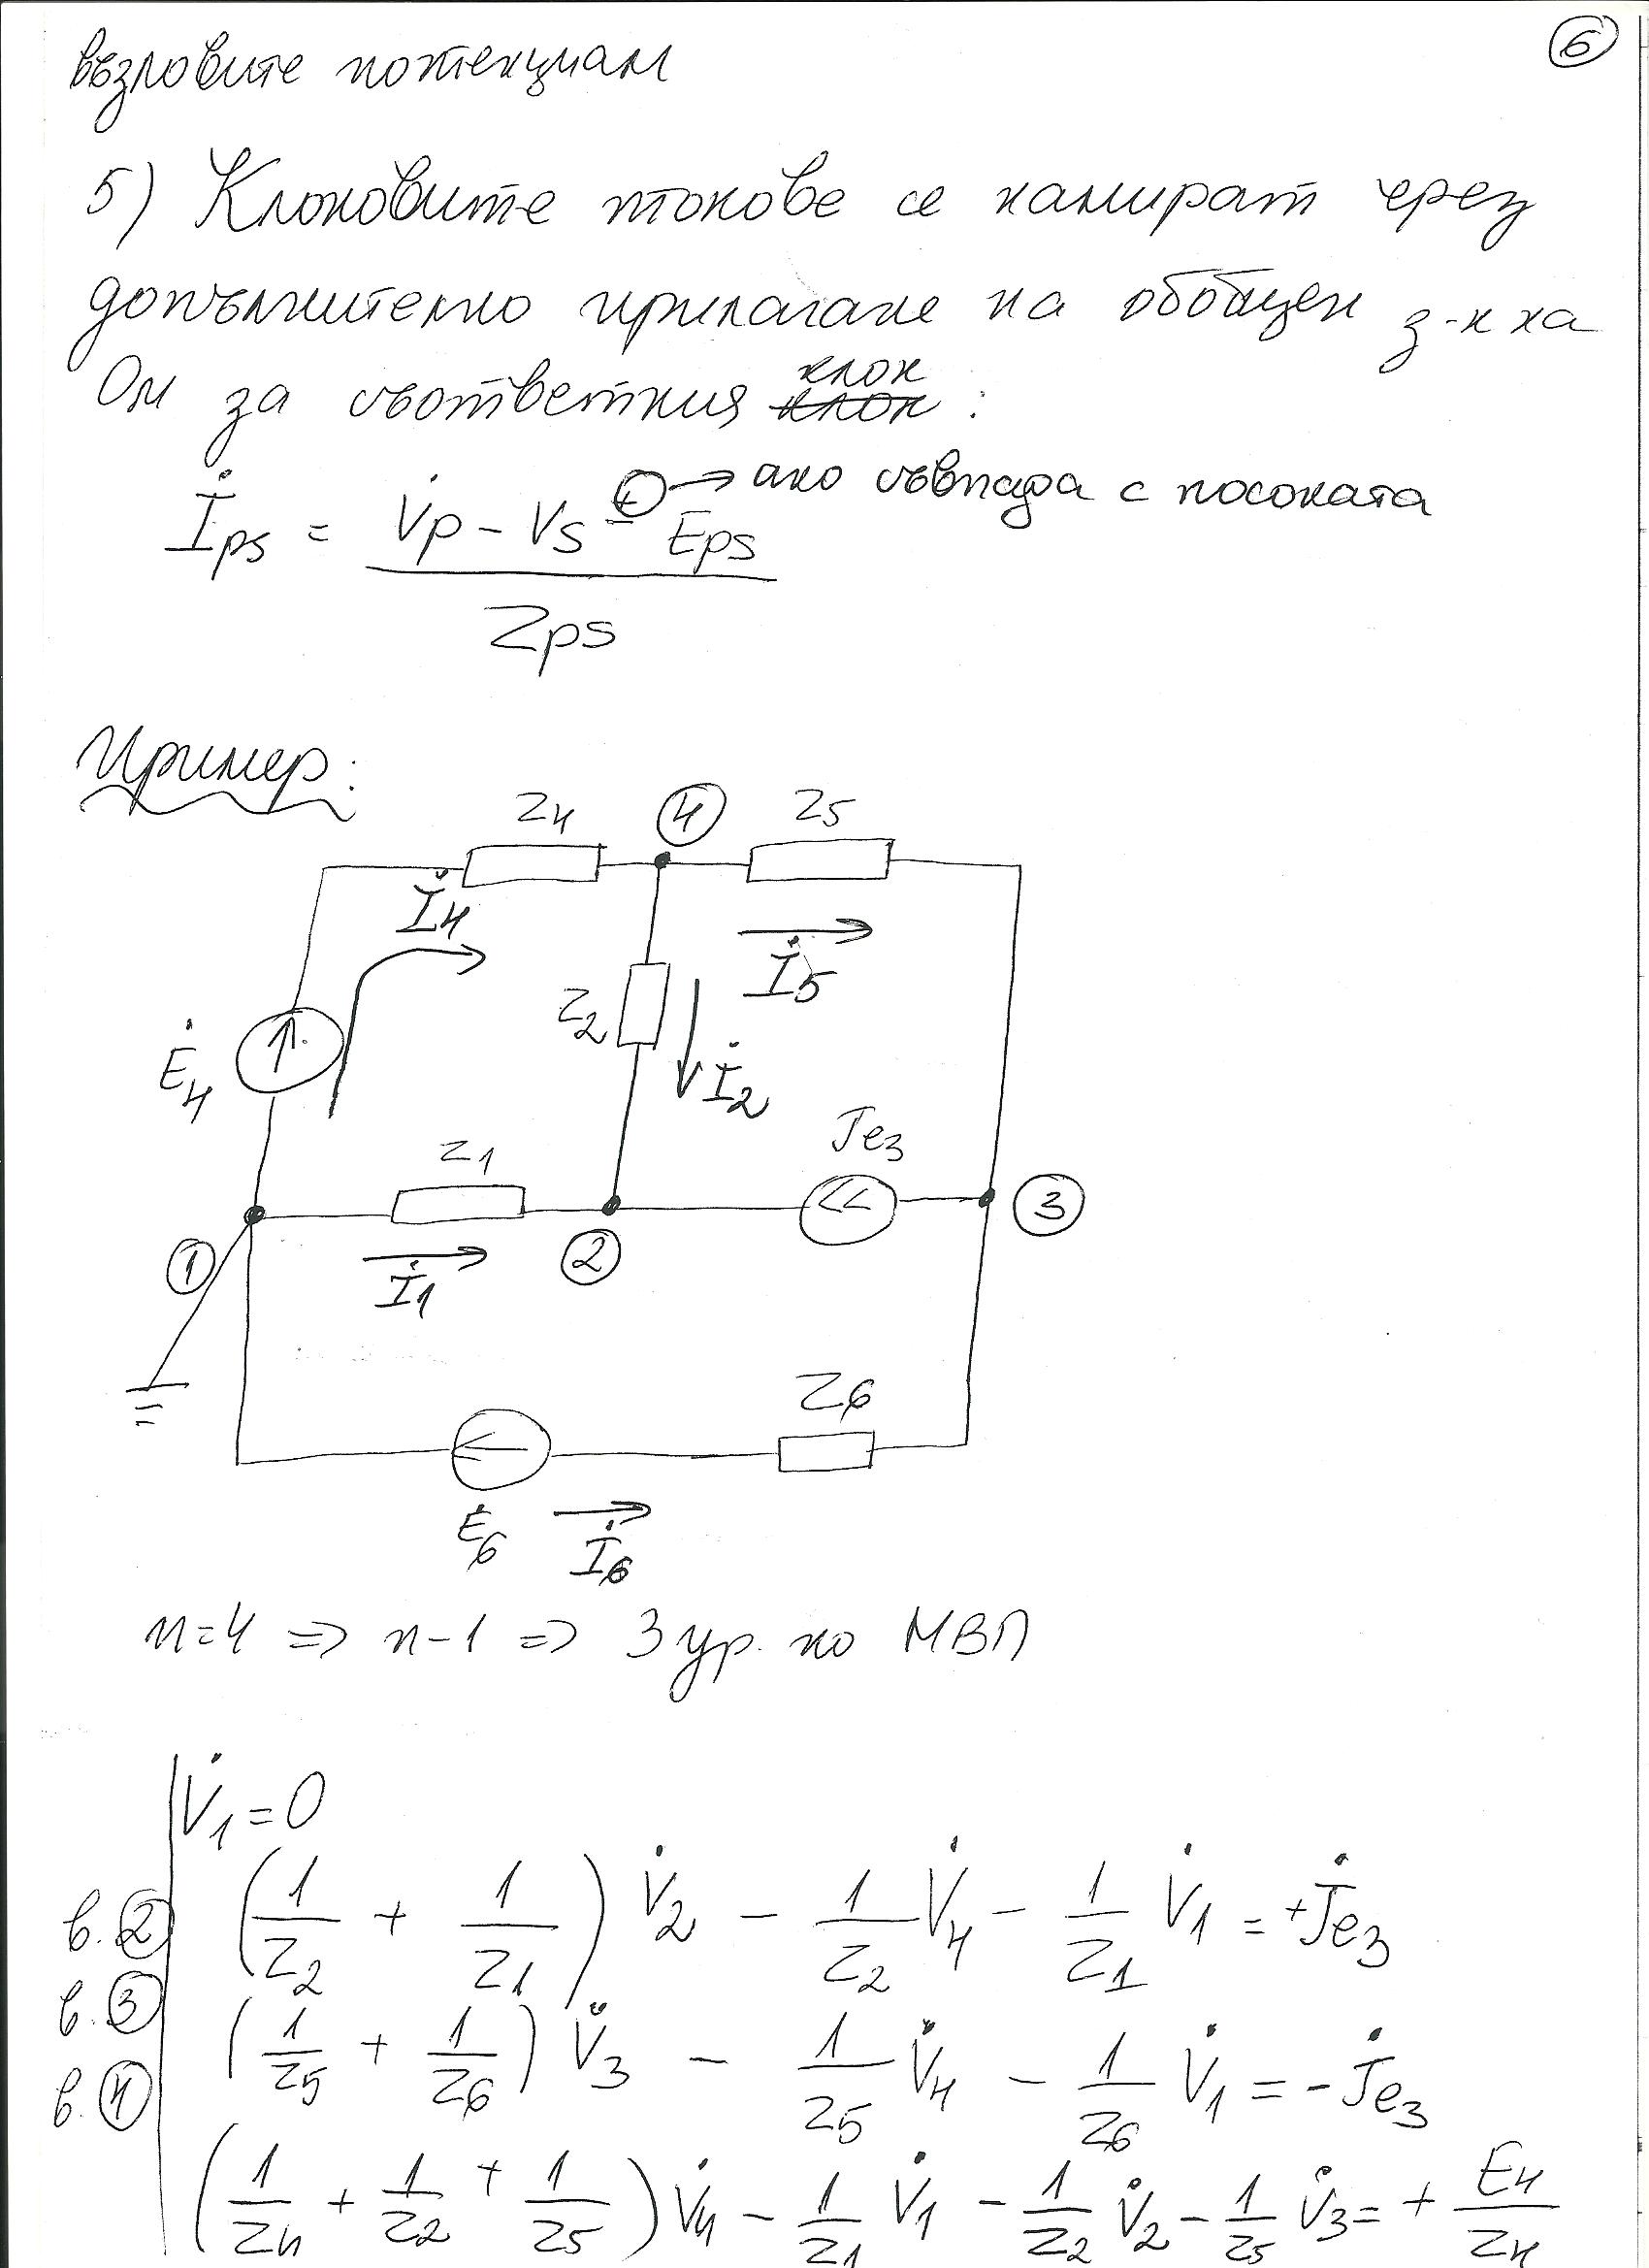 6
възловите потенциали
5) Клоновите токове се намират чрез
допълнително прилагане на обобщен з-н на
Ом за съответния клон :
İps = (V̇p - Vs ± Eps) / Zps
+ → ако съвпада с посоката
Пример:
Z4
4
Z5
İ4
İ5
Z2
Ė4
İ2
Je3
Z1
3
1
2
İ1
Z6
Ė6
İ6
n=4 => n-1 => 3 ур. по МВП
V̇1=0
в.2 (1/Z2 + 1/Z1) V̇2 - 1/Z2 V̇4 - 1/Z1 V̇1 = +J̇e3
в.3 (1/Z5 + 1/Z6) V̇3 - 1/Z5 V̇4 - 1/Z6 V̇1 = -J̇e3
в.4 (1/Z4 + 1/Z2 + 1/Z5) V̇4 - 1/Z1 V̇1 - 1/Z2 V̇2 - 1/Z5 V̇3 = + E4/Z4